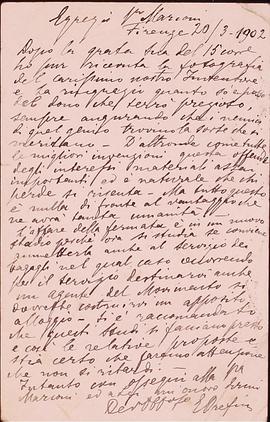 Egregio Sr Marconi
Firenze 20/3-1902
Dopo la grata sua del 15 corr.
ho pur ricevuta la fotografia
del carissimo nostro Inventore
e La ringrazio quanto so e posso
del dono che terrò prezioso,
sempre augurando che i nemici
di quel genio trovino la sorte che si
meritano. D'altronde come tutte
le migliori invenzioni questa offende
degli interessi materiali assai
importanti ed è naturale che chi
perde si risenta. Ma tutto questo
è nulla di fronte al vantaggio che
ne avrà tanta umanità.
L'affare della fermata è in un nuovo
stadio perchè ora si studia se conviene
ammetterla anche al servizio dei
bagagli nel qual caso occorrendo
per il servizio destinarvi anche
un agente del Movimento si
dovrebbe costruirvi un apposito
alloggio. Si è raccomandato
che questi studi si facciano presto
e così le relative proposte e
stia certo che faremo attenzione
che non si ritardi.
Intanto con ossequi alla Sra
Marconi ed
Dev Obbmo